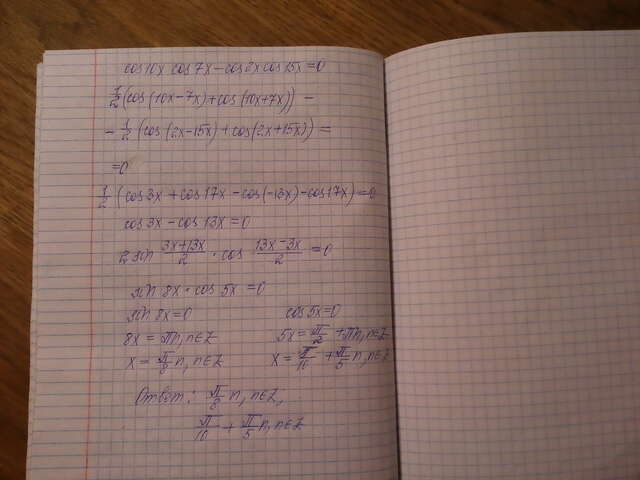 cos10x cos7x - cos2x cos15x = 0
1/2 (cos(10x-7x) + cos(10x+7x)) -
- 1/2 (cos(2x-15x) + cos(2x+15x)) =
= 0
1/2 (cos3x + cos17x - cos(-13x) - cos17x) = 0
cos3x - cos13x = 0
2 sin (3x+13x)/2 · cos (13x-3x)/2 = 0
sin 8x · cos 5x = 0
sin 8x = 0 cos5x = 0
8x = πn, n∈Z 5x = π/2 + πn, n∈Z
x = π/8 n, n∈Z x = π/10 + π/5 n, n∈Z
Ответ: π/8 n, n∈Z,
π/10 + π/5 n, n∈Z